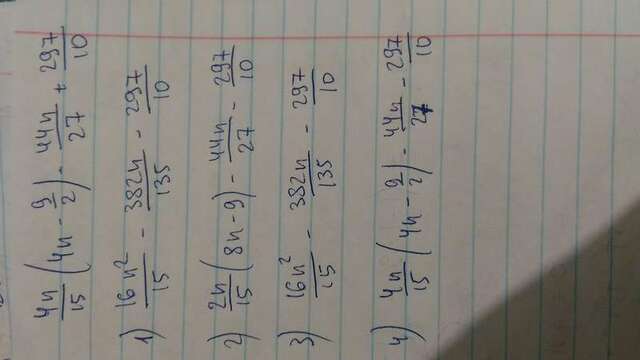 4n/15 (4n - 9/2) - 44n/27 + 297/10
1) 16n²/15 - 382n/135 - 297/10
2) 2n/15 (8n - 9) - 44n/27 - 297/10
3) 16n²/15 - 382n/135 - 297/10
4) 4n/15 (4n - 9/2) - 44n/27 - 297/10